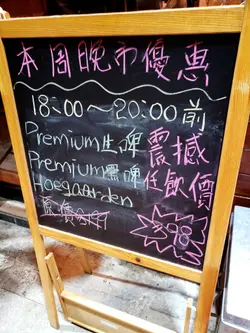 本周晚市優惠
18:00～20:00前
Premium生啤
Premium黑啤
Hoegaarden
震撼
任飲價
$98